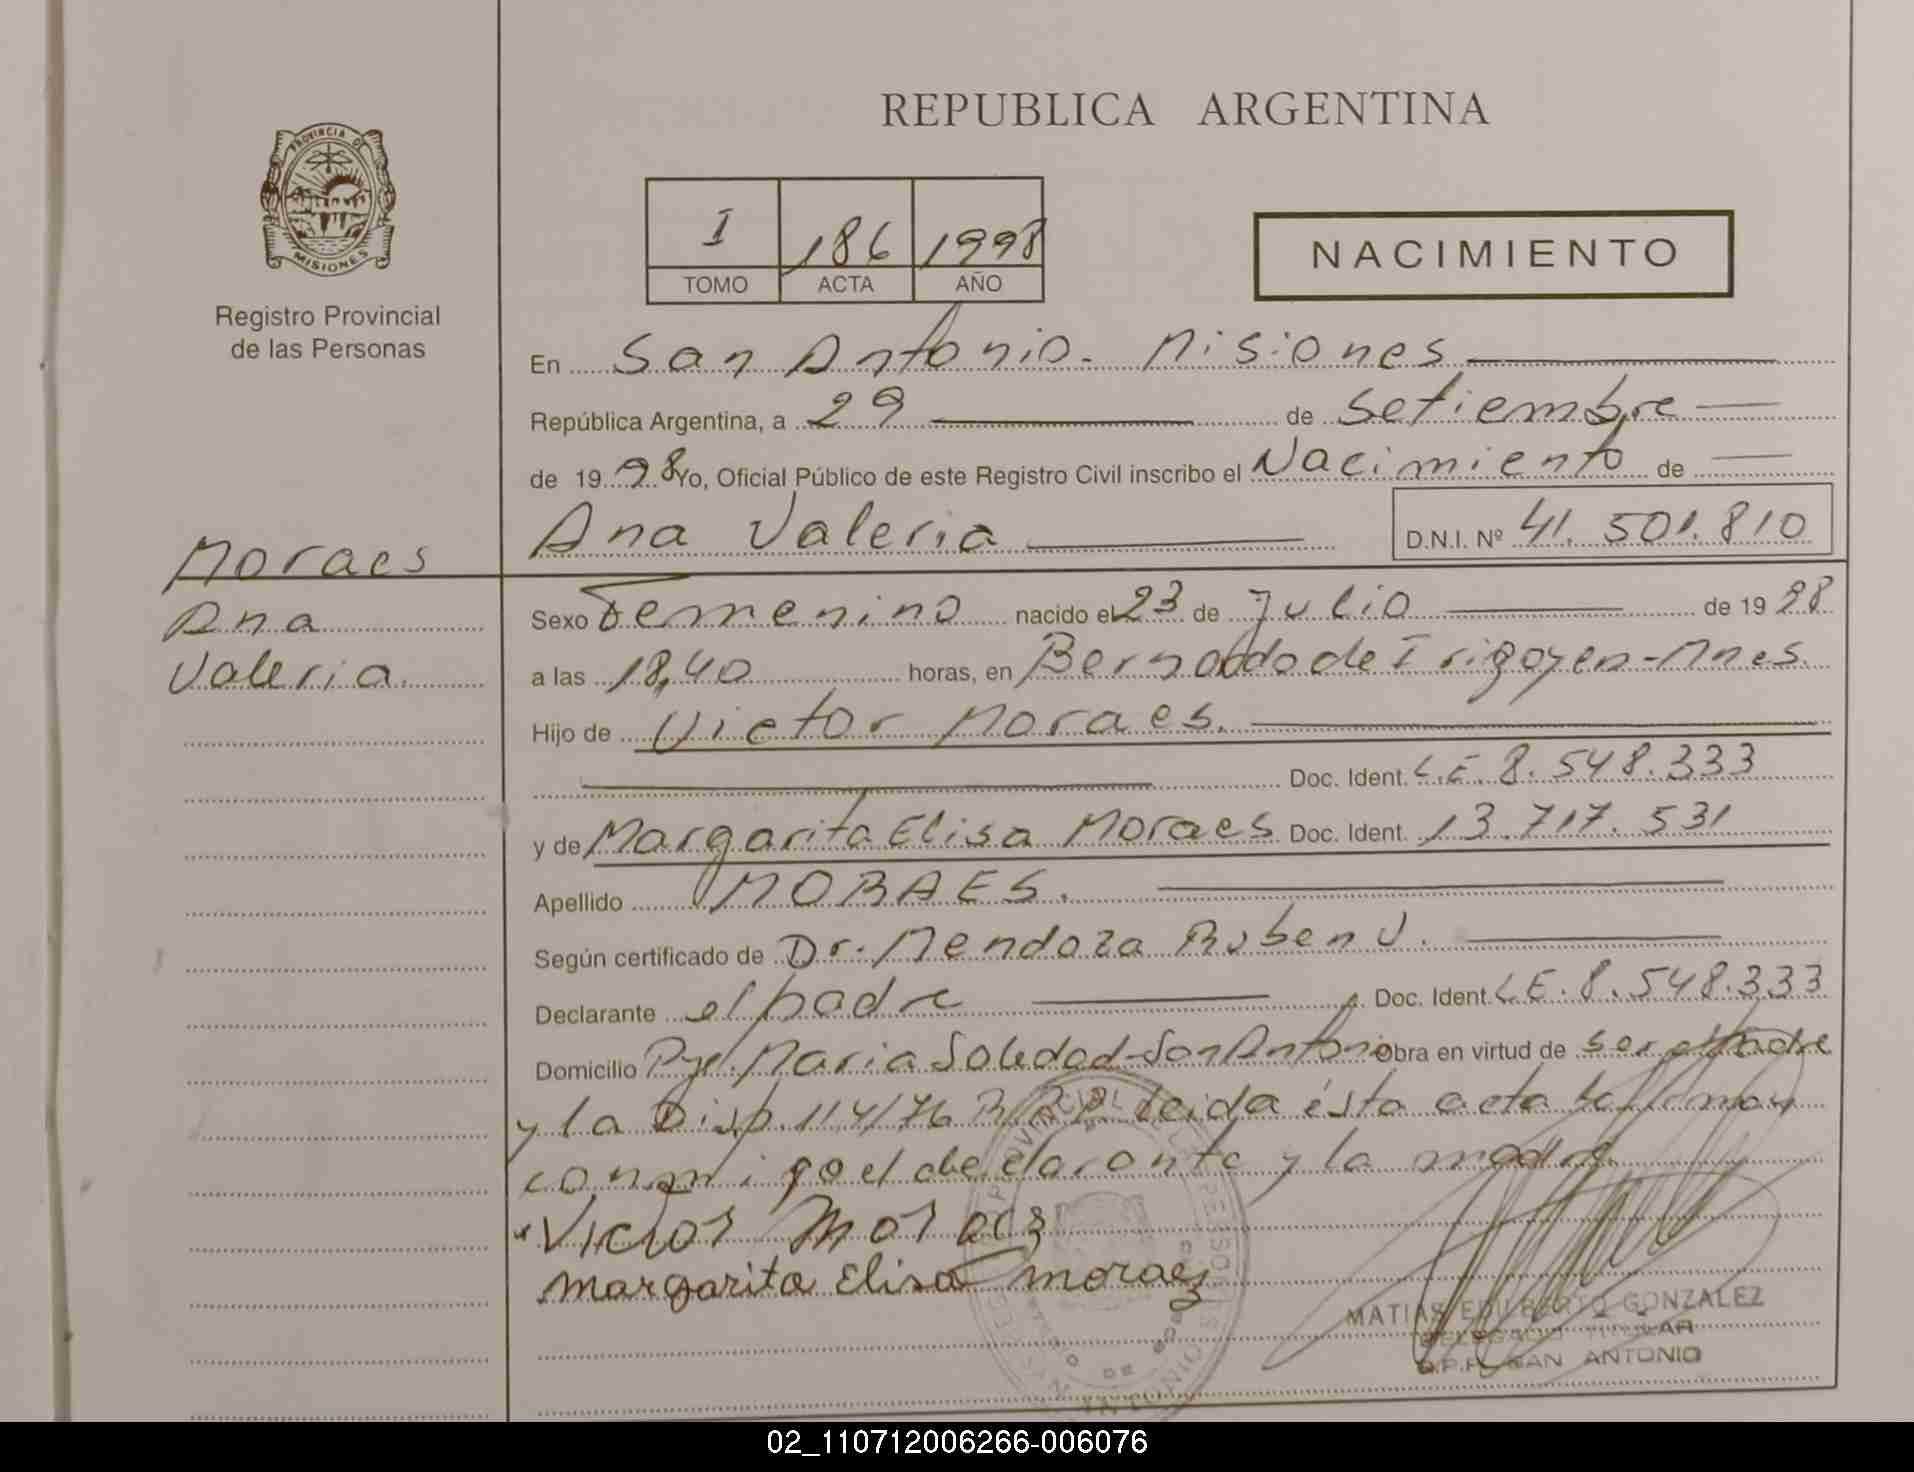 REPUBLICA ARGENTINA
PROVINCIA DE
MISIONES
Registro Provincial
de las Personas
I 186 1998
TOMO ACTA AÑO
NACIMIENTO
En San Antonio - Misiones
República Argentina, a 29 de Setiembre
de 19 98 Yo, Oficial Público de este Registro Civil inscribo el Nacimiento de
Ana Valeria D.N.I. Nº 41.501.810
Moraes
Ana
Valeria.
Sexo Femenino nacido el 23 de Julio de 19 98
a las 18,40 horas, en Bernardo de Irigoyen - Mnes.
Hijo de Victor Moraes.
Doc. Ident. L.E. 8.548.333
y de Margarita Elisa Moraes Doc. Ident. 13.717.531
Apellido MORAES.
Según certificado de Dr. Mendoza Ruben V.
Declarante el padre Doc. Ident. L.E. 8.548.333
Domicilio Pje. Maria Soledad - San Antonio obra en virtud de ser el padre
y la Disp. 114/76 Leida ésta acta la firman
conmigo el declarante y la madre.
Victor Moraes
Margarita Elisa Moraes
MATIAS EDILBERTO GONZALEZ
DELEGADO TITULAR
D.P.P. SAN ANTONIO
02_110712006266-006076